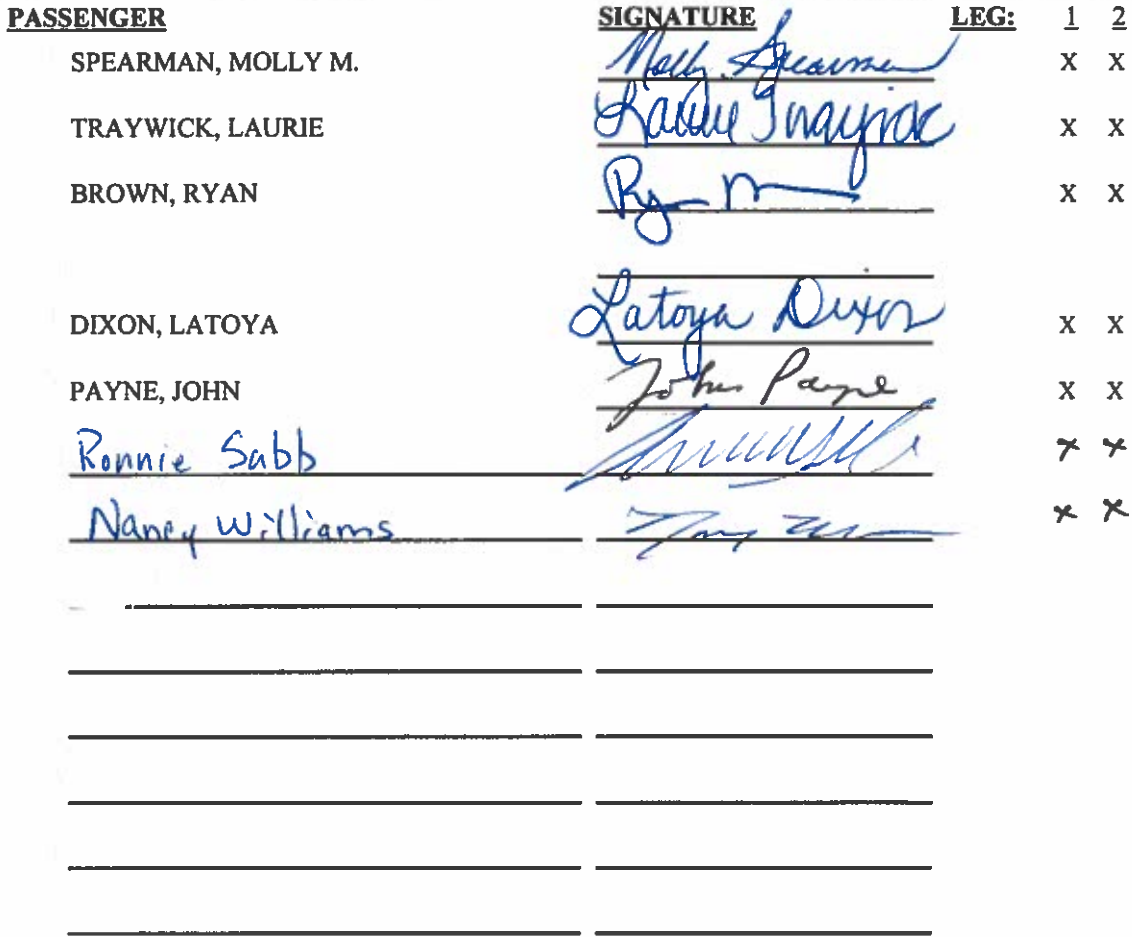 PASSENGER SIGNATURE LEG: 1 2
SPEARMAN, MOLLY M. Molly Spearman X X
TRAYWICK, LAURIE Laurie Traywick X X
BROWN, RYAN Ryan X X
DIXON, LATOYA Latoya Dixon X X
PAYNE, JOHN John Payne X X
Ronnie Sabb x x
Nancy Williams x x